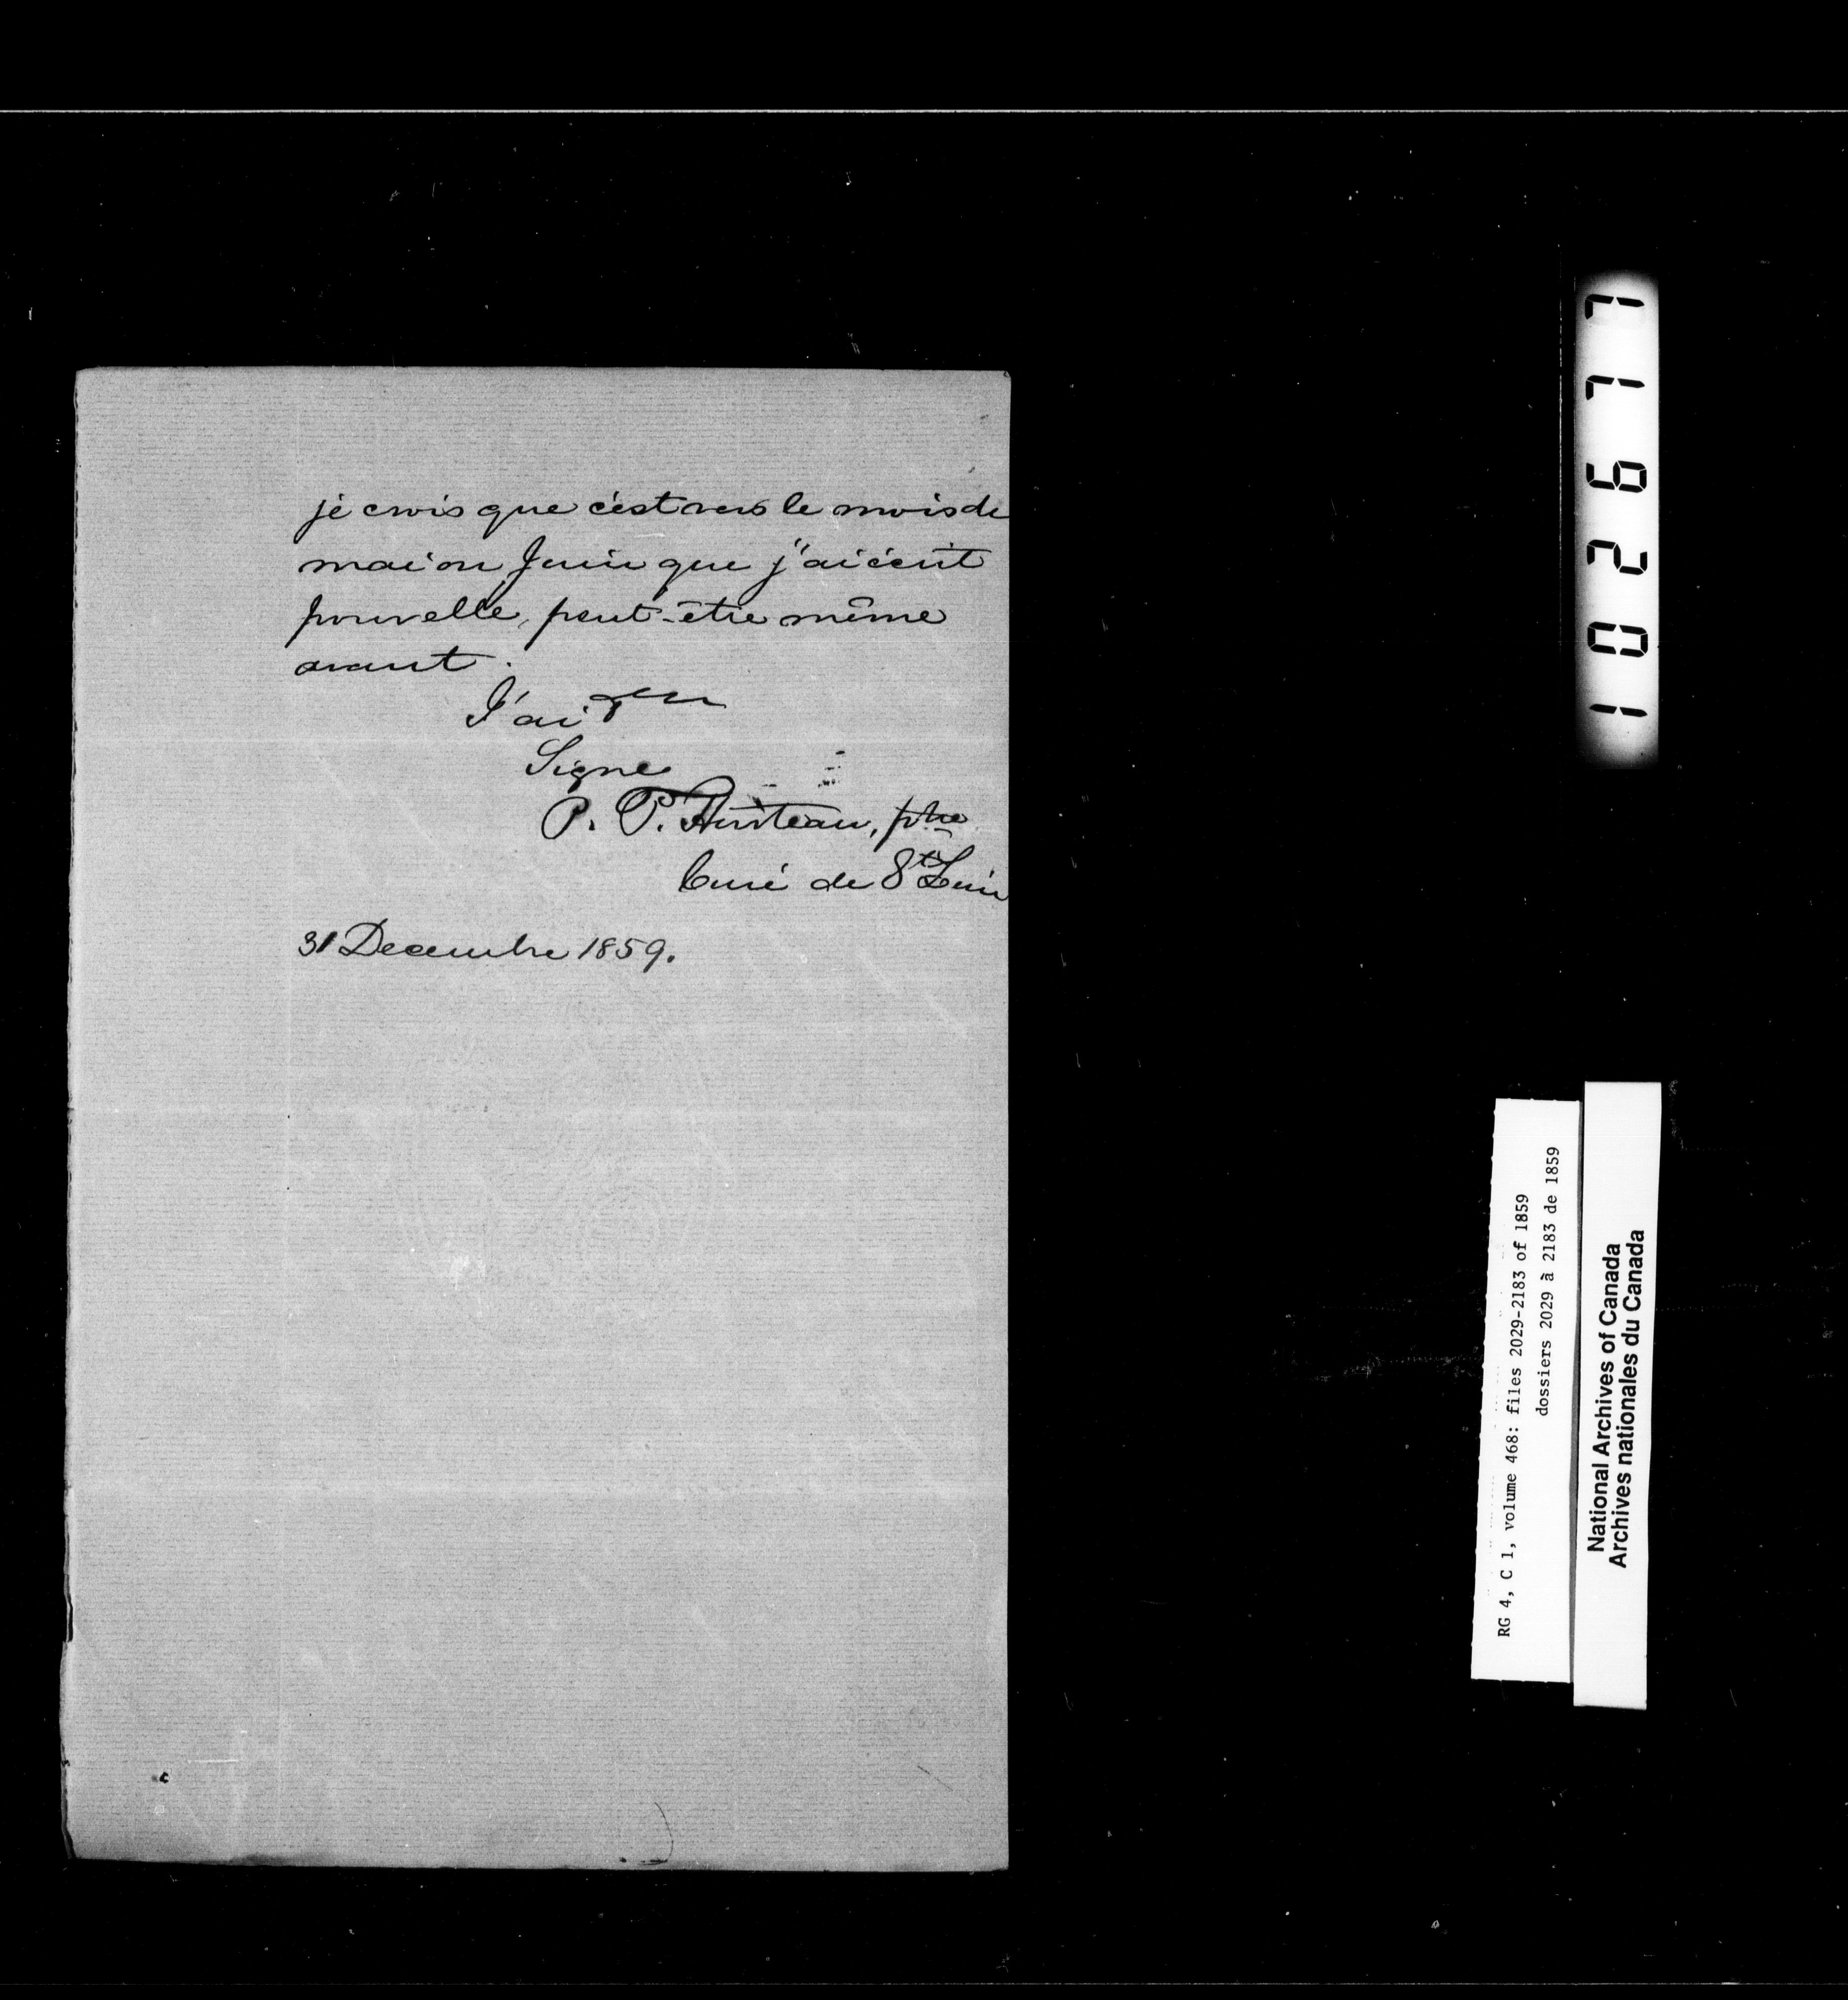 je crois que c'est vers le mois de
mai ou Juin que j'ai écrit
pour elle, peut-être même
avant.
J'ai
Signé
P. P. Hurteau, ptre
Curé de St Lin
31 Decembre 1859.
102677
RG 4, C 1, volume 468: files 2029-2183 of 1859
dossiers 2029 à 2183 de 1859
National Archives of Canada
Archives nationales du Canada